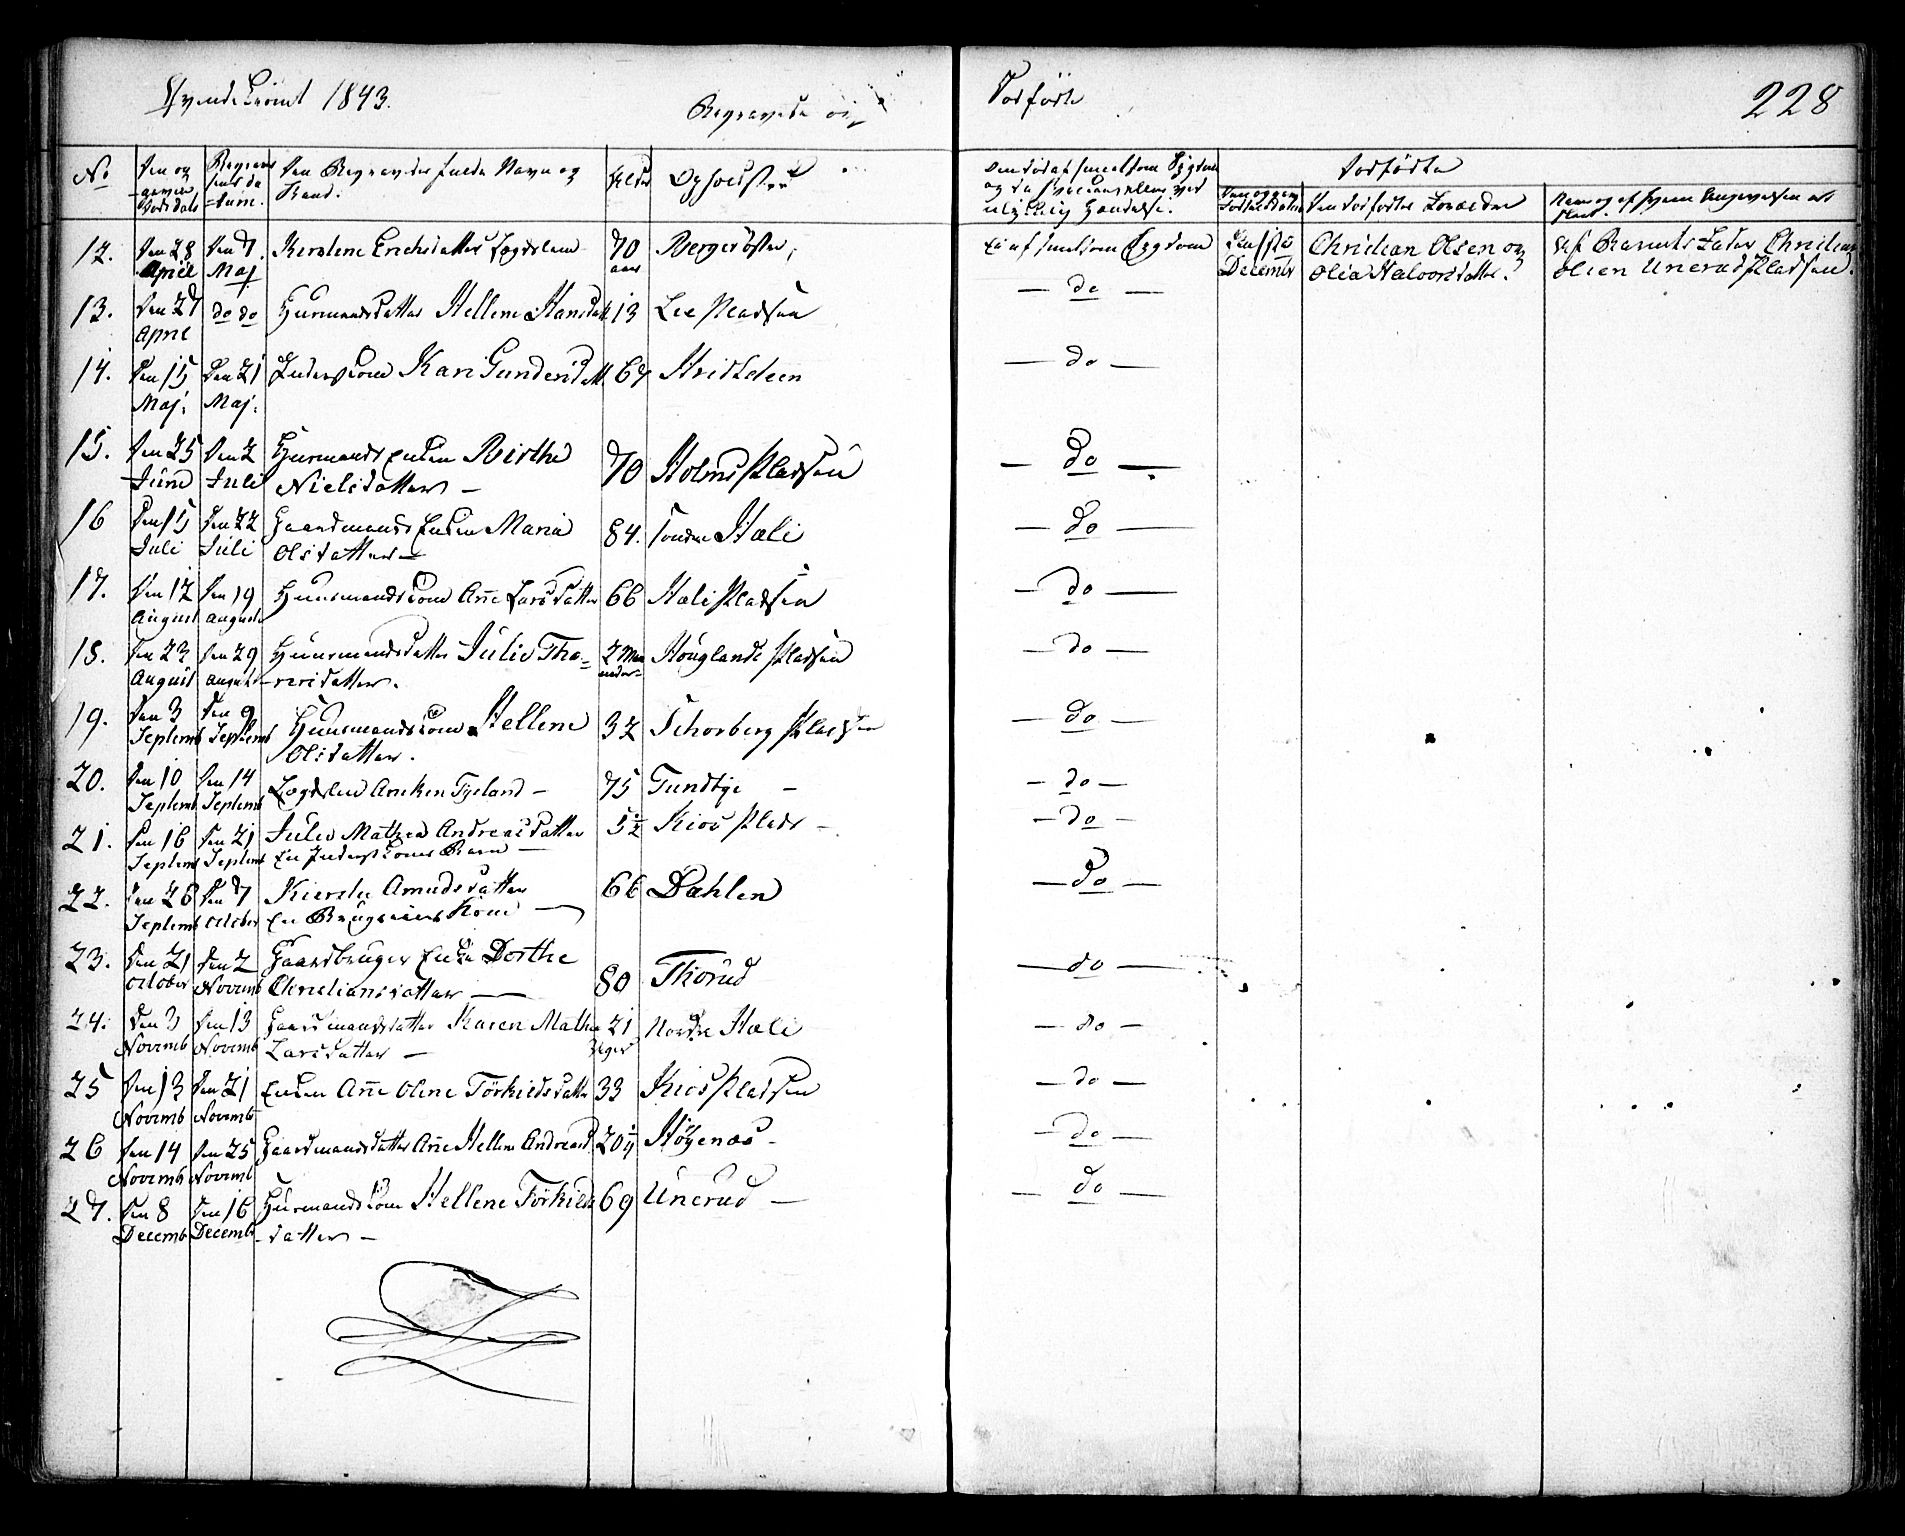 Qvinde Kiönnet 1843.
Begravede og
Dødfødte
228
No
Den og
Dødsdato
Begravel
sens da
=tum.
Den Begravedes fulde Navn og
Stand.
Alder
Opholdsted
Om død af smeelsom Sygdom
ulykkelig Hændelse.
Dødfødte
Den Dødfødtes Forældre
Hvem og af hvem Angivelsen er
skeet.
12. Den 28 April Den 7. Maj Kirstene Erichsdatter Lægdslem 70 aar Berger østre,
Ei af smeelsom Sygdom
December
Christian Olsen og
Olea Halvorsdatter.
af Barnets Fader Christian
Olsen Unerudpladsen.
13. Den 27 April do do Huusmandsdatter Hellene Hansdatt 13 Lee Pladsen
— do —
14. Den 15 Maj. Den 21 Maj. Inderstkone Kari Gundersdatt 67
— do —
15. Den 25 Juni Den 2 Juli Huusmands Enken Birthe
Nielsdatter — 70 Holms Pladsen
— do —
16 Den 15 Juli Den 22 Juli Gaardmands Enken Maria
Olsdatter — 84. Søndre Hæli
— do —
17. Den 12 August Den 19 August Huusmandskone Anne Larsdatter 66 Hæli Pladsen
— do —
18. Den 23 August Den 29 August Huusmandsdatter Julie Tho=
resdatter. 2 Maaneder Houglands Pladsen
— do —
19. Den 3 Septemb Den 9 Septemb Huusmandskone Hellene
Olsdatter. 32 Schorberg Pladsen
— do —
20. Den 10 Septemb Den 14 Septemb Lægdslem Aneken Tyeland — 75 Tundbye —
— do —
21. Den 16 Septemb Den 21 Septemb Julie Mathea Andreasdatter
En Inderst Kones Barn — 5½ Kios Plads —
— do —
22. Den 26 Septemb Den 7 October Kierste Amundsdatter
En Brugseiers Kone — 66 Dahlen
— do —
23. Den 21 October Den 2 Novemb Gaardbruger Enke Dorthe
Christiansdatter — 80 Thorud
— do —
24. Den 3 Novemb Den 13 Novemb Gaardmandsdatter Karen Mathe
Larsdatter — 21 Uger Nordre Hæli
— do —
25 Den 13 Novemb Den 21 Novemb Enken Anne Oline Törkildsdatter 33 Kios Pladsen
— do —
26 Den 14 Novemb Den 25 Novemb Gaardmandsdatter Anne Hellene Andreasd 20¼ Högenæs —
— do —
27. Den 8 Decemb Den 16 Decemb Huusmandskone Hellene Törkilds
datter — 69 Unerud —
— do —